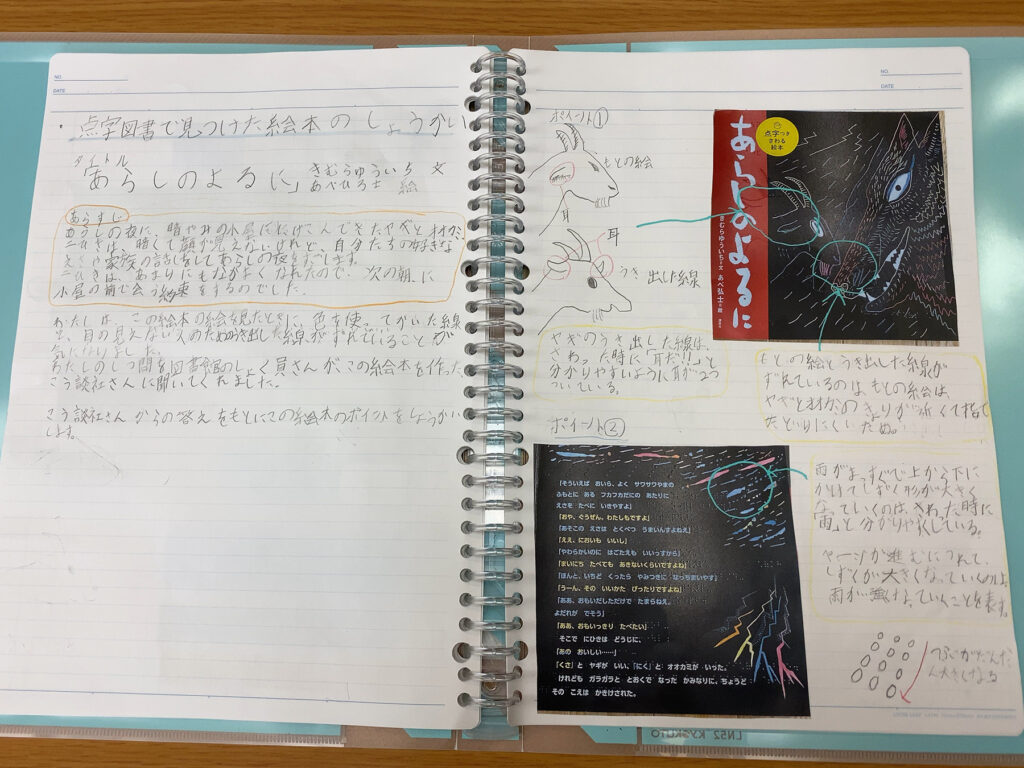 NO.
DATE
・点字図書で見つけた絵本のしょうかい
タイトル
「あらしのよるに」 きむらゆういち 文
あべひろ士 絵
あらすじ
あらしの夜に、暗やみの小屋ににげこんできたヤギとオオカミ
二ひきは、暗くて顔が見えないけれど、自分たちの好きな
えさや家族の話をしてあらしの夜をすごします。
二ひきは、あまりにもなかよくなれたので、次の朝、に
小屋の前で会う約束をするのでした。
わたしは、この絵本の絵を見たときに、色を使ってかいた線
と、目の見えない人のためのうき出した線がずれていることが
気になりました。
わたしのしつ問を図書館のしょく員さんが、この絵本を作った
こう談社さんに聞いてくれました。
こう談社さんからの答えをもとにこの絵本のポイントをしょうかい
します。
NO.
DATE
ポイント①
もとの絵
耳
耳
うき出した線
ヤギのうき出した線は、
さわった時に「耳だ!!」と
分かりやすいように耳が2つ
ついている。
点字つき
さわる
絵本
あらしのよるに
きむらゆういち・文 あべ弘士・絵
もとの絵とうき出した線が
ずれているのは、もとの絵は、
ヤギとオオカミのきょりが近くて指で
たどりにくいため。
ポイント②
「そういえば おいら、よく サワサワやまの
ふもとに ある フカフカだにの あたりに
えさを たべに いきやすよ」
「おや、ぐうぜん、わたしもですよ」
「あそこの えさは とくべつ うまいんすよねえ」
「ええ、においも いいし」
「やわらかいのに はごたえも いいっすから」
「まいにち たべても あきないくらいですよね」
「ほんと、いちど くったら やみつきに なっちまいやす」
「うーん、その いいかた ぴったりですよね」
「ああ、おもいだしただけで たまらねえ。
よだれが でそう」
「ああ、おもいっきり たべたい」
そこで にひきは どうじに、
「あの おいしい……」
「くさ」と ヤギが いい、「にく」と オオカミが いった。
けれども ガラガラと とおくで なった かみなりに、ちょうど
その こえは かきけされた。
雨がまっすぐで上から下に
かけてしずく形が大きく
なっていくのは、さわった時に
「雨」と分かりやすくしている。
ページが進むにつれて、
しずくが大きくなっていくのは、
雨が強くなっていくことを表す。
つぶがだんだ
ん大きくなる
LN52 KYOKUTO